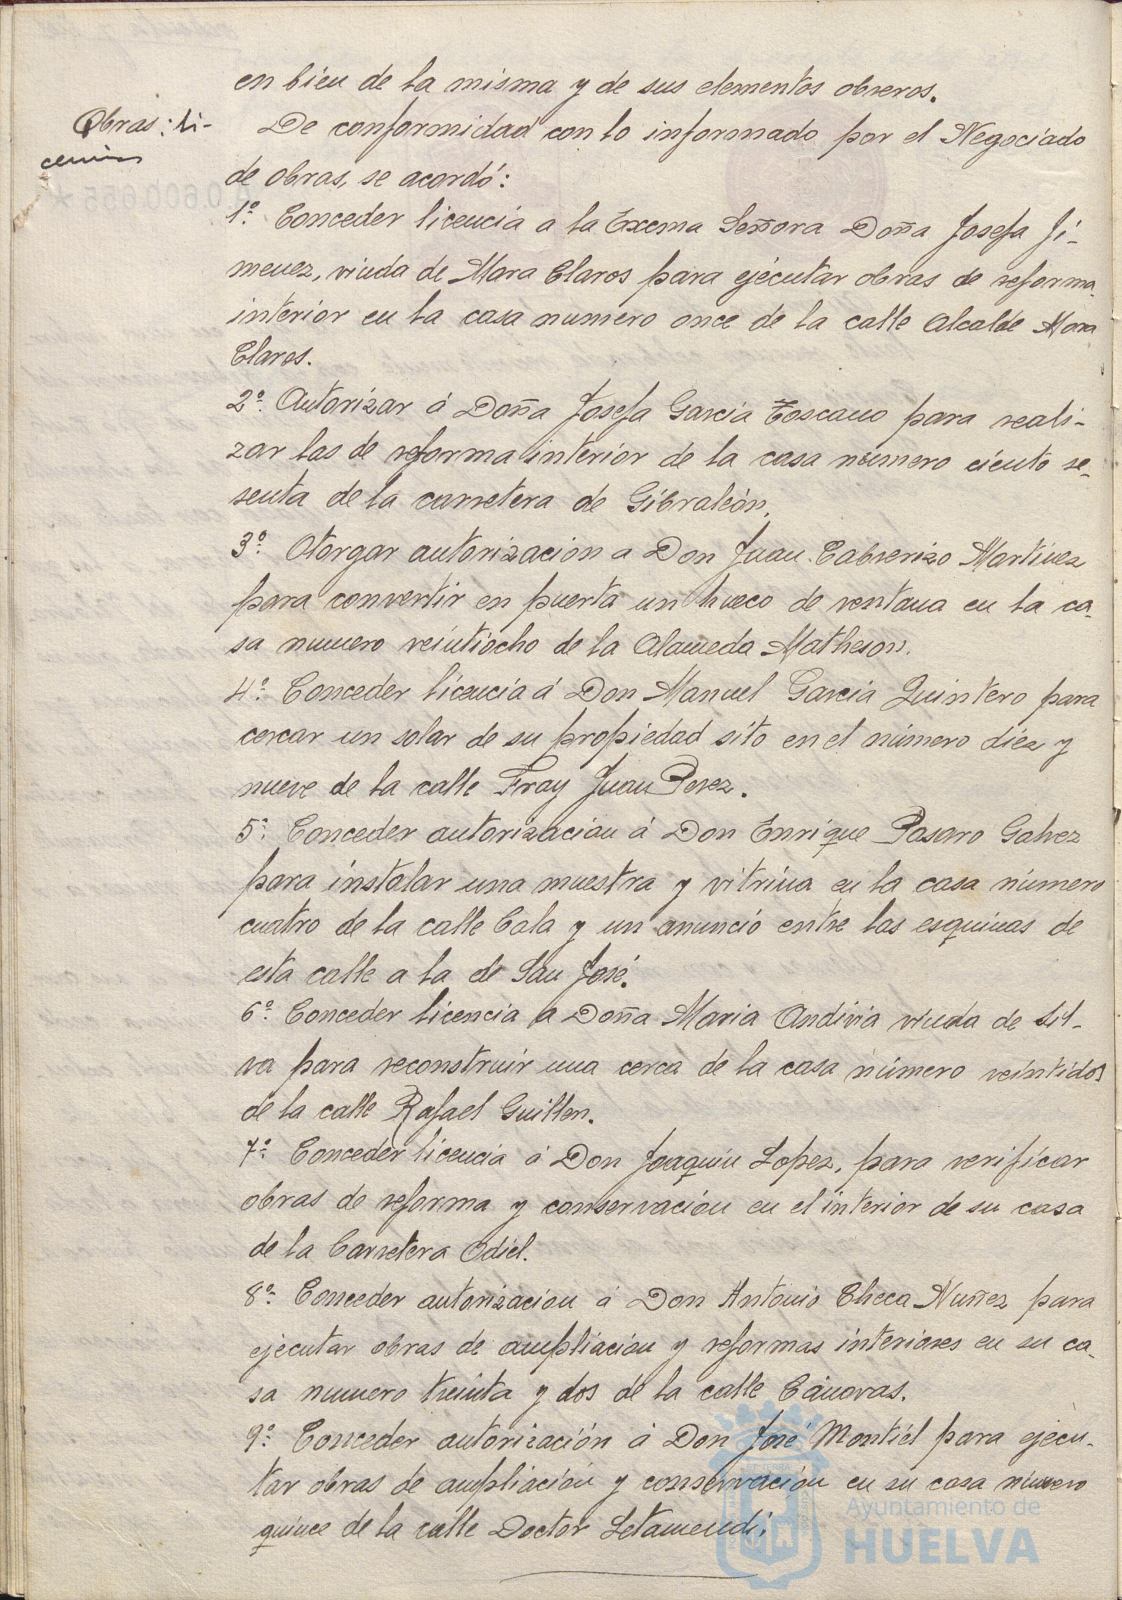 en bien de la misma y de sus elementos obreros.
Obras: li-
cencias
De conformidad con lo informado por el Negociado
de obras, se acordó:
1º Conceder licencia a la Excma Señora Doña Josefa Ji-
menez, viuda de Mora Claros para ejecutar obras de reforma
interior en la casa numero once de la calle Alcalde Mora
Claros.
2º Autorizar á Doña Josefa Garcia Toscano para reali-
zar las de reforma interior de la casa número ciento se-
senta de la carretera de Gibraleón.
3º Otorgar autorización a Don Juan Cabrerizo Martinez
para convertir en puerta un hueco de ventana en la ca-
sa numero veintiocho de la Alameda Matheson.
4º Conceder licencia á Don Manuel Garcia Quintero para
cercar un solar de su propiedad sito en el número diez y
nueve de la calle Fray Juan Perez.
5º Conceder autorización á Don Enrique Pasaro Galvez
para instalar una muestra y vitrina en la casa número
cuatro de la calle Cala y un anuncio entre las esquinas de
esta calle a la de San José.
6º Conceder licencia a Doña Maria Andivia viuda de Sil-
va para reconstruir una cerca de la casa número veintidos
de la calle Rafael Guillen.
7º Conceder licencia á Don Joaquin Lopez, para verificar
obras de reforma y conservación en el interior de su casa
de la Carretera Odiel.
8º Conceder autorizacion á Don Antonio Checa Nuñez para
ejecutar obras de ampliación y reformas interiores en su ca-
sa numero treinta y dos de la calle Cánovas.
9º Conceder autorización á Don José Montiel para ejecu-
tar obras de ampliación y conservación en su casa número
quince de la calle Doctor Letamendi.
Ayuntamiento de
HUELVA